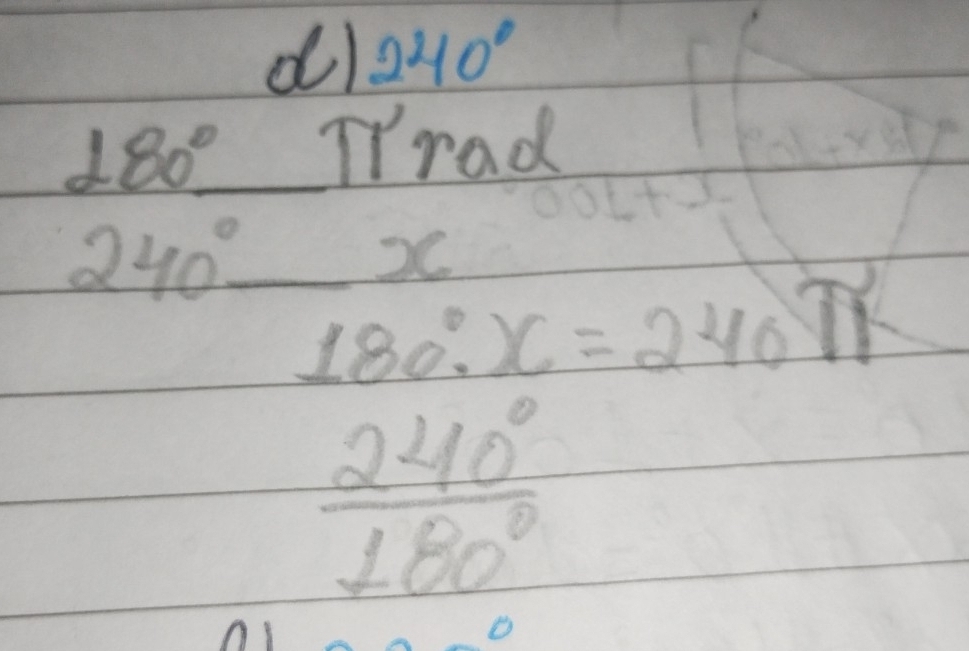 d) 240°
180° ___ π rad
240° ___ x
180°.x = 240π
240°
180°